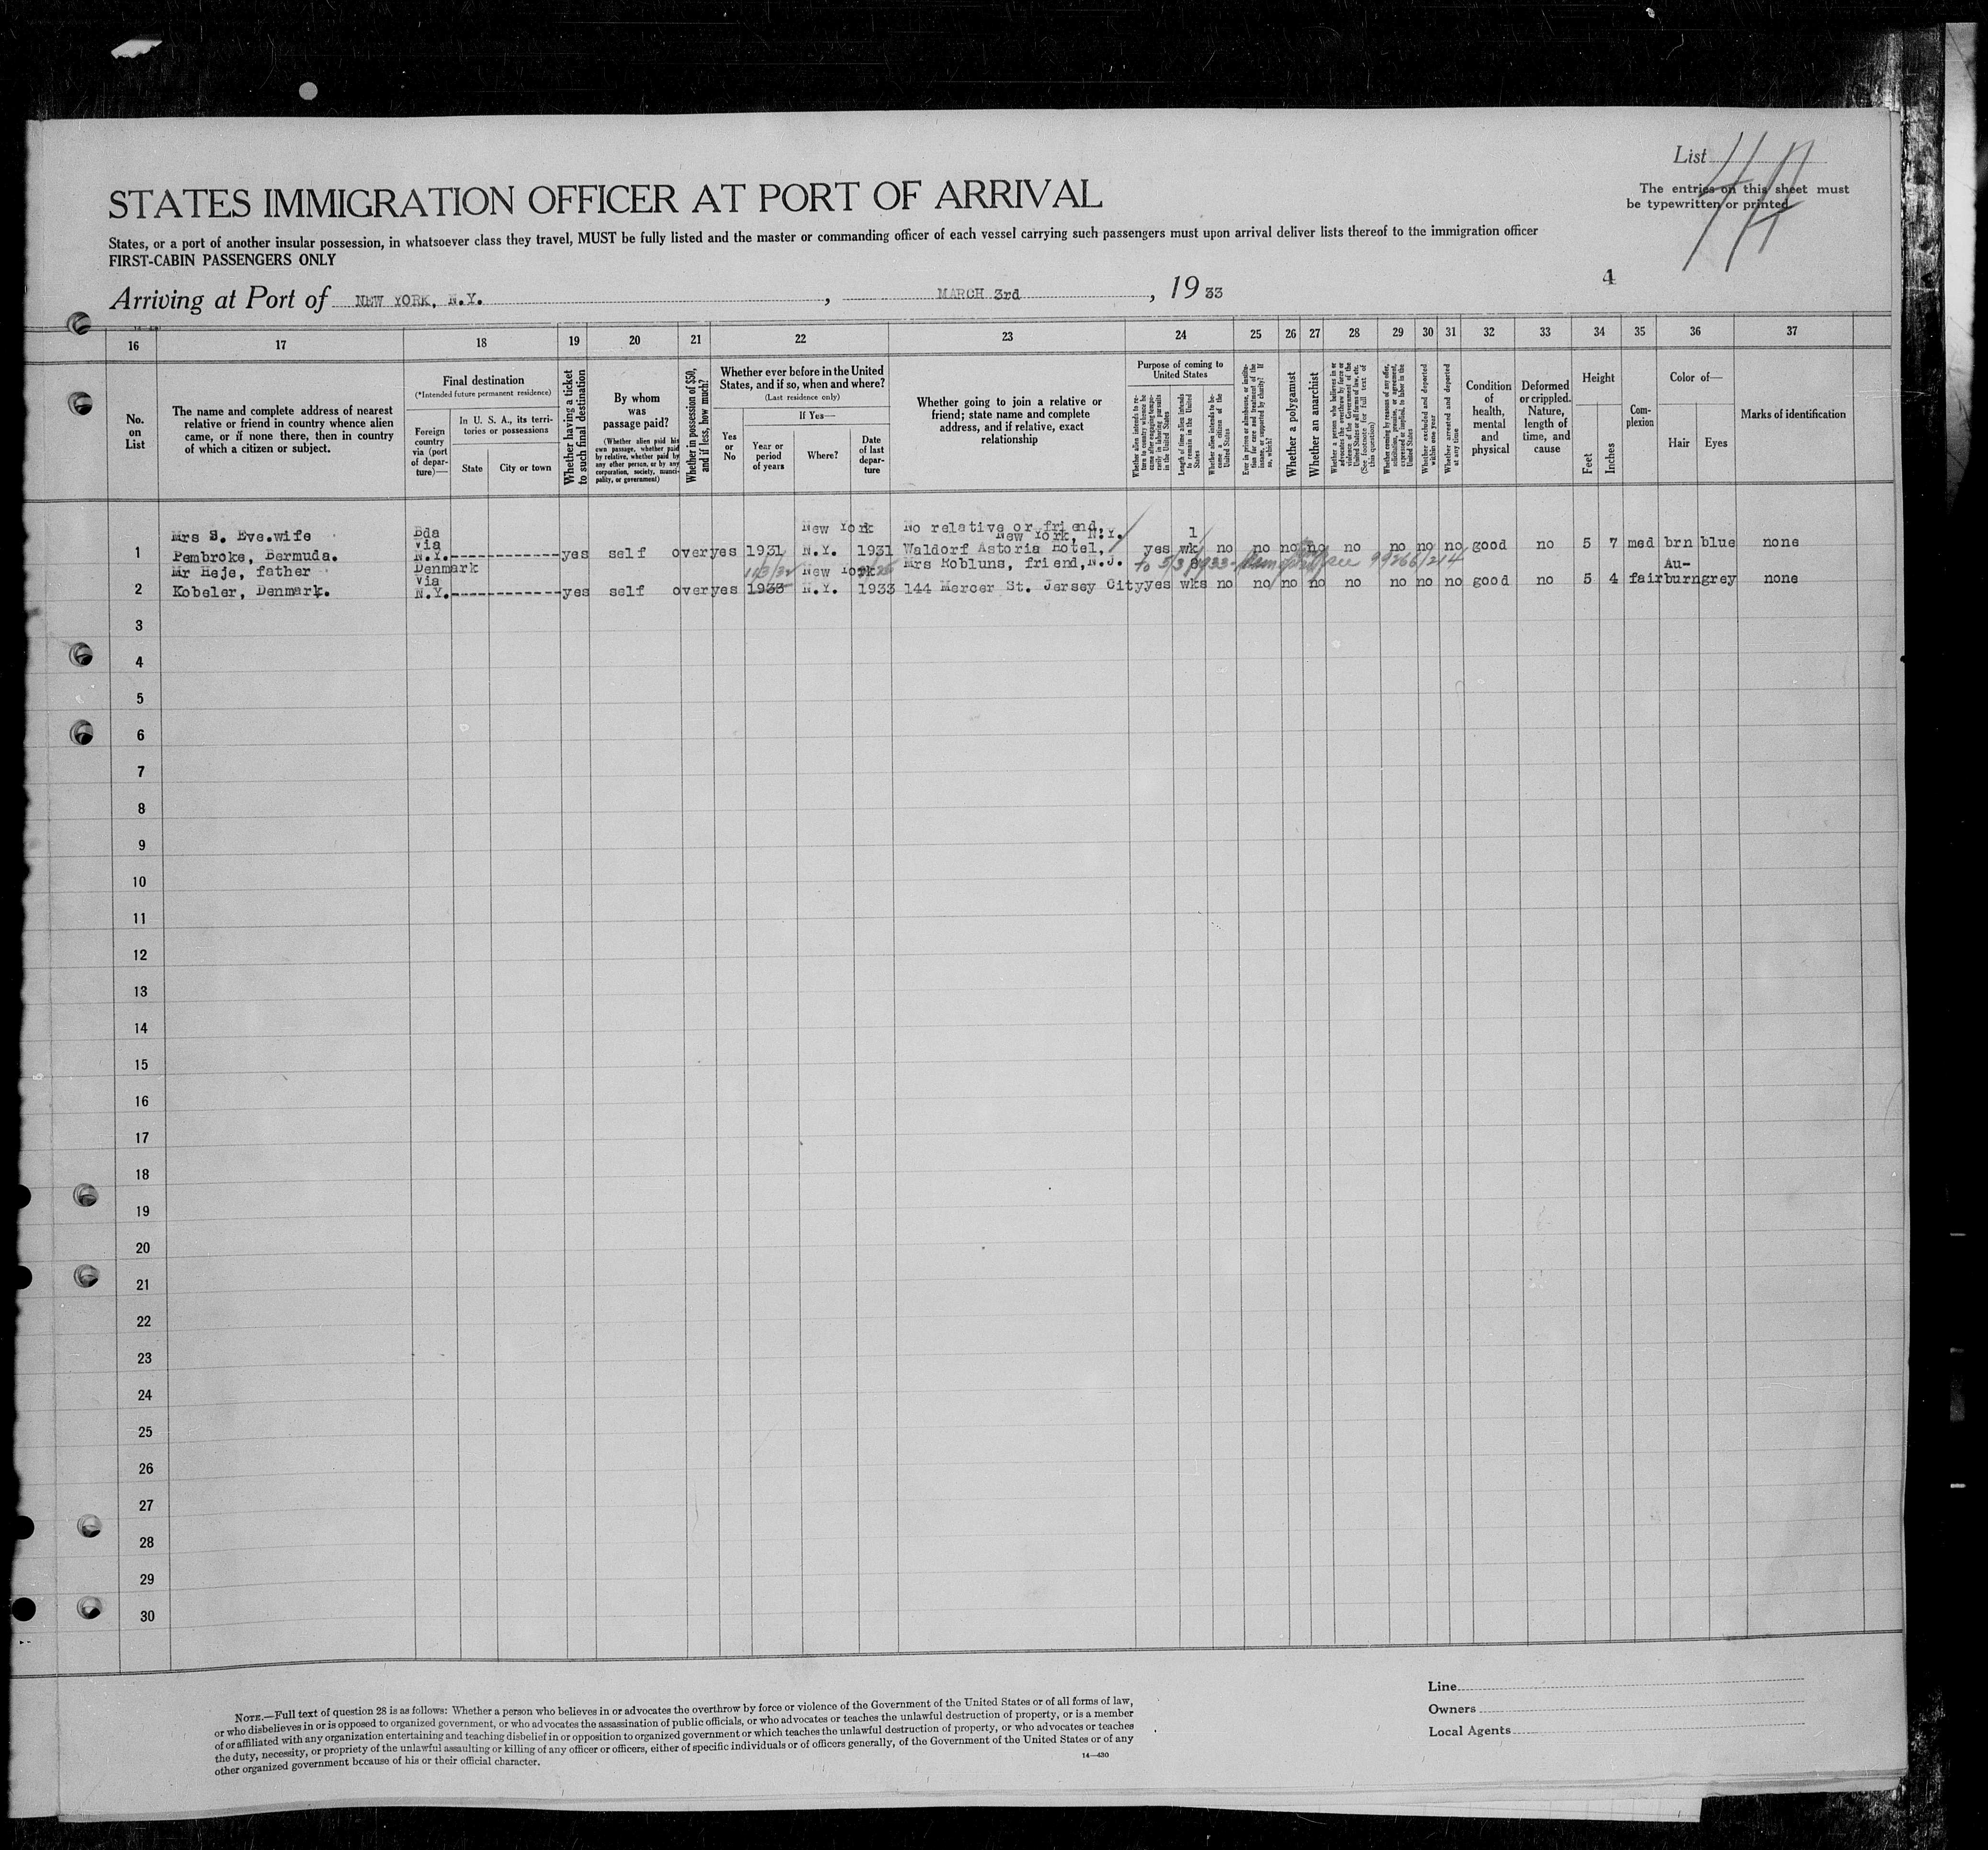 List
The entries on this sheet must
be typewritten or printed
STATES IMMIGRATION OFFICER AT PORT OF ARRIVAL
States, or a port of another insular possession, in whatsoever class they travel, MUST be fully listed and the master or commanding officer of each vessel carrying such passengers must upon arrival deliver lists thereof to the immigration officer
FIRST-CABIN PASSENGERS ONLY
4
Arriving at Port of NEW YORK, N.Y. , MARCH 3rd , 19 33
16 17 18 19 20 21 22 23 24 25 26 27 28 29 30 31 32 33 34 35 36 37
No.
on
List
The name and complete address of nearest
relative or friend in country whence alien
came, or if none there, then in country
of which a citizen or subject.
Final destination
(*Intended future permanent residence)
Foreign
country
via (port
of depar-
ture)—
In U. S. A., its terri-
tories or possessions
State
City or town
Whether having a ticket
to such final destination
By whom
was
passage paid?
(Whether alien paid his
own passage, whether paid
by relative, whether paid by
any other person, or by any
corporation, society, munici-
pality, or government)
Whether in possession of $50,
and if less, how much?
Whether ever before in the United
States, and if so, when and where?
(Last residence only)
Yes
or
No
If Yes—
Year or
period
of years
Where?
Date
of last
depar-
ture
Whether going to join a relative or
friend; state name and complete
address, and if relative, exact
relationship
Purpose of coming to
United States
Whether alien intends to re-
turn to country whence he
came after engaging tempo-
rarily in laboring pursuits
in the United States
Length of time alien intends
to remain in the United
States
Whether alien intends to be-
come a citizen of the
United States
Ever in prison or almshouse, or institu-
tion for care and treatment of the
insane, or supported by charity? If
so, which?
Whether a polygamist
Whether an anarchist
Whether a person who believes in or
advocates the overthrow by force or
violence of the Government of the
United States or all forms of law, etc.
(See footnote for full text of
this question)
Whether coming by reason of any offer,
solicitation, promise, or agreement,
expressed or implied, to labor in the
United States
Whether excluded and deported
within one year
Whether arrested and deported
at any time
Condition
of
health,
mental
and
physical
Deformed
or crippled.
Nature,
length of
time, and
cause
Height
Feet
Inches
Com-
plexion
Color of—
Hair
Eyes
Marks of identification
Mrs S. Eve.wife Bda New York No relative or friend,
via New York, N.Y. 1
1 Pembroke, Bermuda. N.Y.------------yes self over yes 1931 N.Y. 1931 Waldorf Astoria Hotel, yes wk no no no no no no no no good no 5 7 med brn blue none
Mr Heje, father Denmark 11/3/32 New York Mrs Robluns, friend,N.J. to 5/3/1933 99268/214 Au-
via
2 Kobeler, Denmark. N.Y.------------yes self over yes 1933 N.Y. 1933 144 Mercer St. Jersey City yes wks no no no no no no no no good no 5 4 fair burn grey none
3
4
5
6
7
8
9
10
11
12
13
14
15
16
17
18
19
20
21
22
23
24
25
26
27
28
29
30
NOTE.—Full text of question 28 is as follows: Whether a person who believes in or advocates the overthrow by force or violence of the Government of the United States or of all forms of law,
or who disbelieves in or is opposed to organized government, or who advocates the assassination of public officials, or who advocates or teaches the unlawful destruction of property, or is a member
of or affiliated with any organization entertaining and teaching disbelief in or opposition to organized government or which teaches the unlawful destruction of property, or who advocates or teaches
the duty, necessity, or propriety of the unlawful assaulting or killing of any officer or officers, either of specific individuals or of officers generally, of the Government of the United States or of any
other organized government because of his or their official character.
14—430
Line
Owners
Local Agents